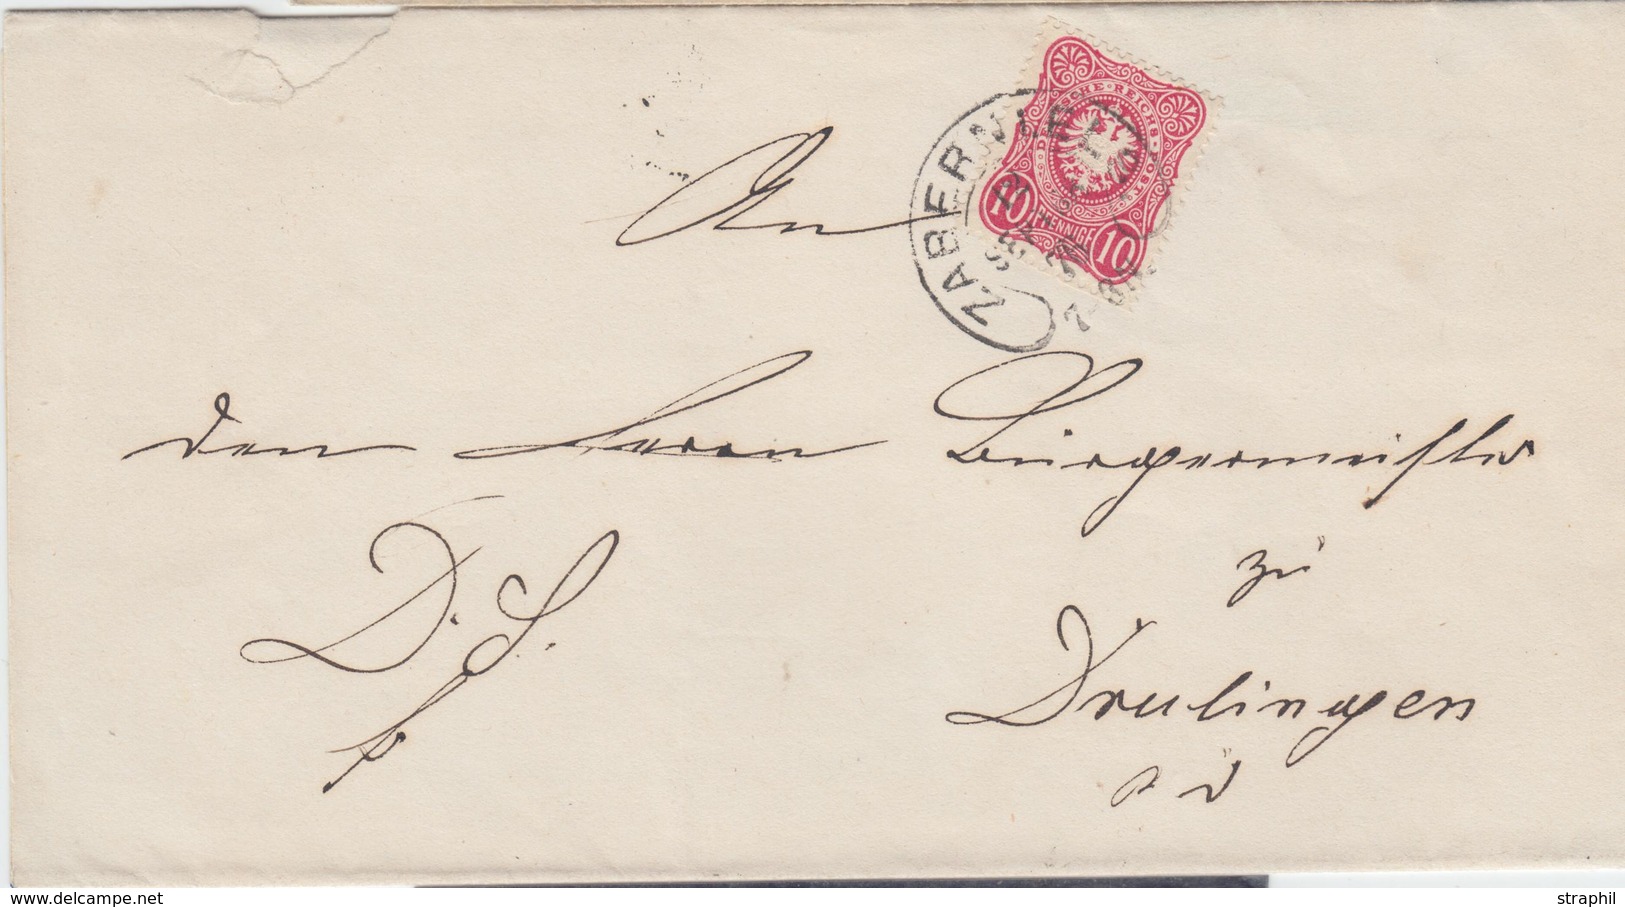 DEUTSCHE · REICHS-POST
10 PFENNIGE 10
ZABERN
An
den Herrn Bürgermeister
zu
D. S.
Drulingen
straphil